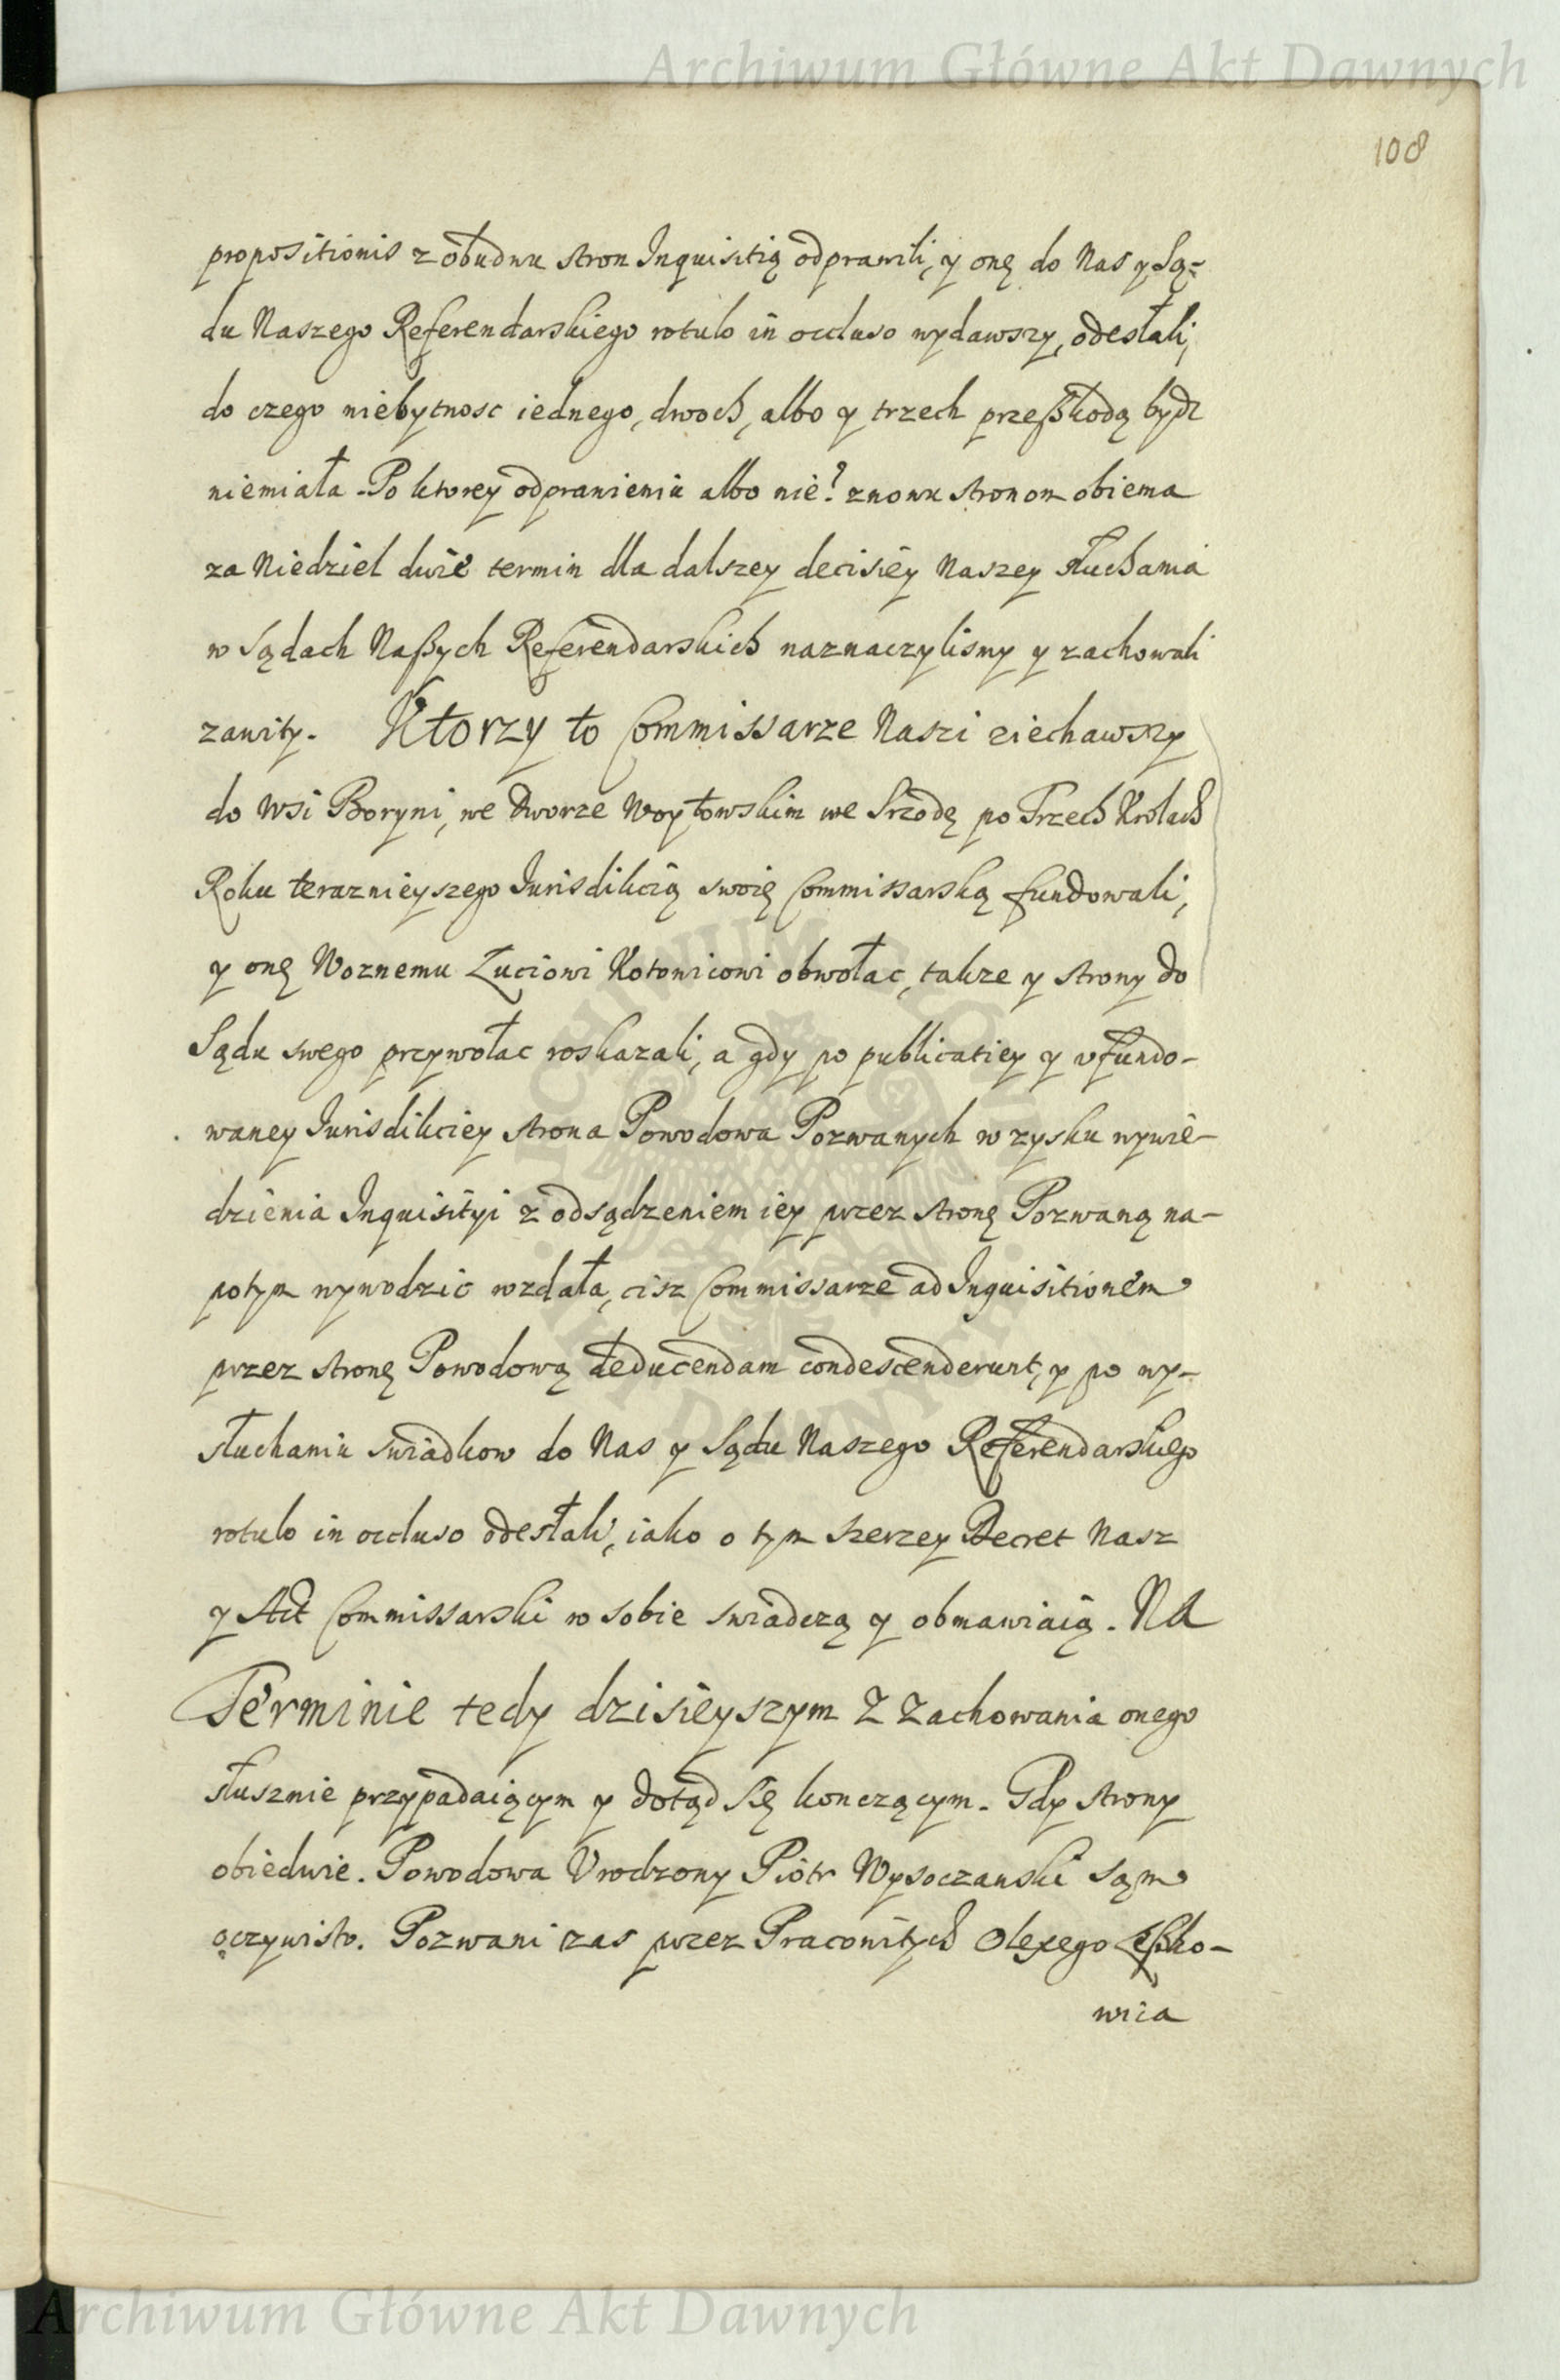 Archiwum Główne Akt Dawnych
108
propositionis z obudwu stron Inquisitią odprawili, y onę do Nas y Są-
du Naszego Referendarskiego rotulo in occluso wydawszy, odesłali,
do czego niebytnosc iednego, dwoch, albo y trzech przeszkodą bydz
niemiała. Po ktorey odprawieniu albo nie? znowu stronom obiema
za Niedziel dwie termin dla dalszey decisiey Naszey słuchania
w Sądach Naszych Referendarskich naznaczylismy y zachowali
zawity. Ktorzy to Commissarze Naszi ziechawszy
do Wsi Boryni, we Dworze Woytowskim we Srzodę po Trzech Krolach
Roku teraznieyszego Jurisdikcią swoię Commissarską fundowali,
y onę Woznemu Łuciowi Kotowiczowi obwołac, takze y strony do
Sądu swego przywołac roskazali, a gdy po publicatiey y ufundo-
waney Jurisdikciey strona Powodowa Pozwanych w zysku wywie-
dzienia Inquisityi z odsądzeniem iey przez stronę Pozwaną na-
potym wywodzic wzdała, cisz Commissarze ad Inquisitionem
przez stronę Powodową deducendam condescenderunt, y po wy-
słuchaniu swiadkow do Nas y Sądu Naszego Referendarskiego
rotulo in occluso odesłali, iako o tym szerzey Decret Nasz
y Act Commissarski w sobie swiadczą y obmawiaią. Na
Terminie tedy dzisieyszym z zachowania onego
słusznie przypadaiącym y dotąd się konczącym. Gdy strony
obiedwie. Powodowa Urodzony Piotr Wysoczanski sam
oczywisto. Pozwani zas przez Pracowitych Olexego
wica
Archiwum Główne Akt Dawnych